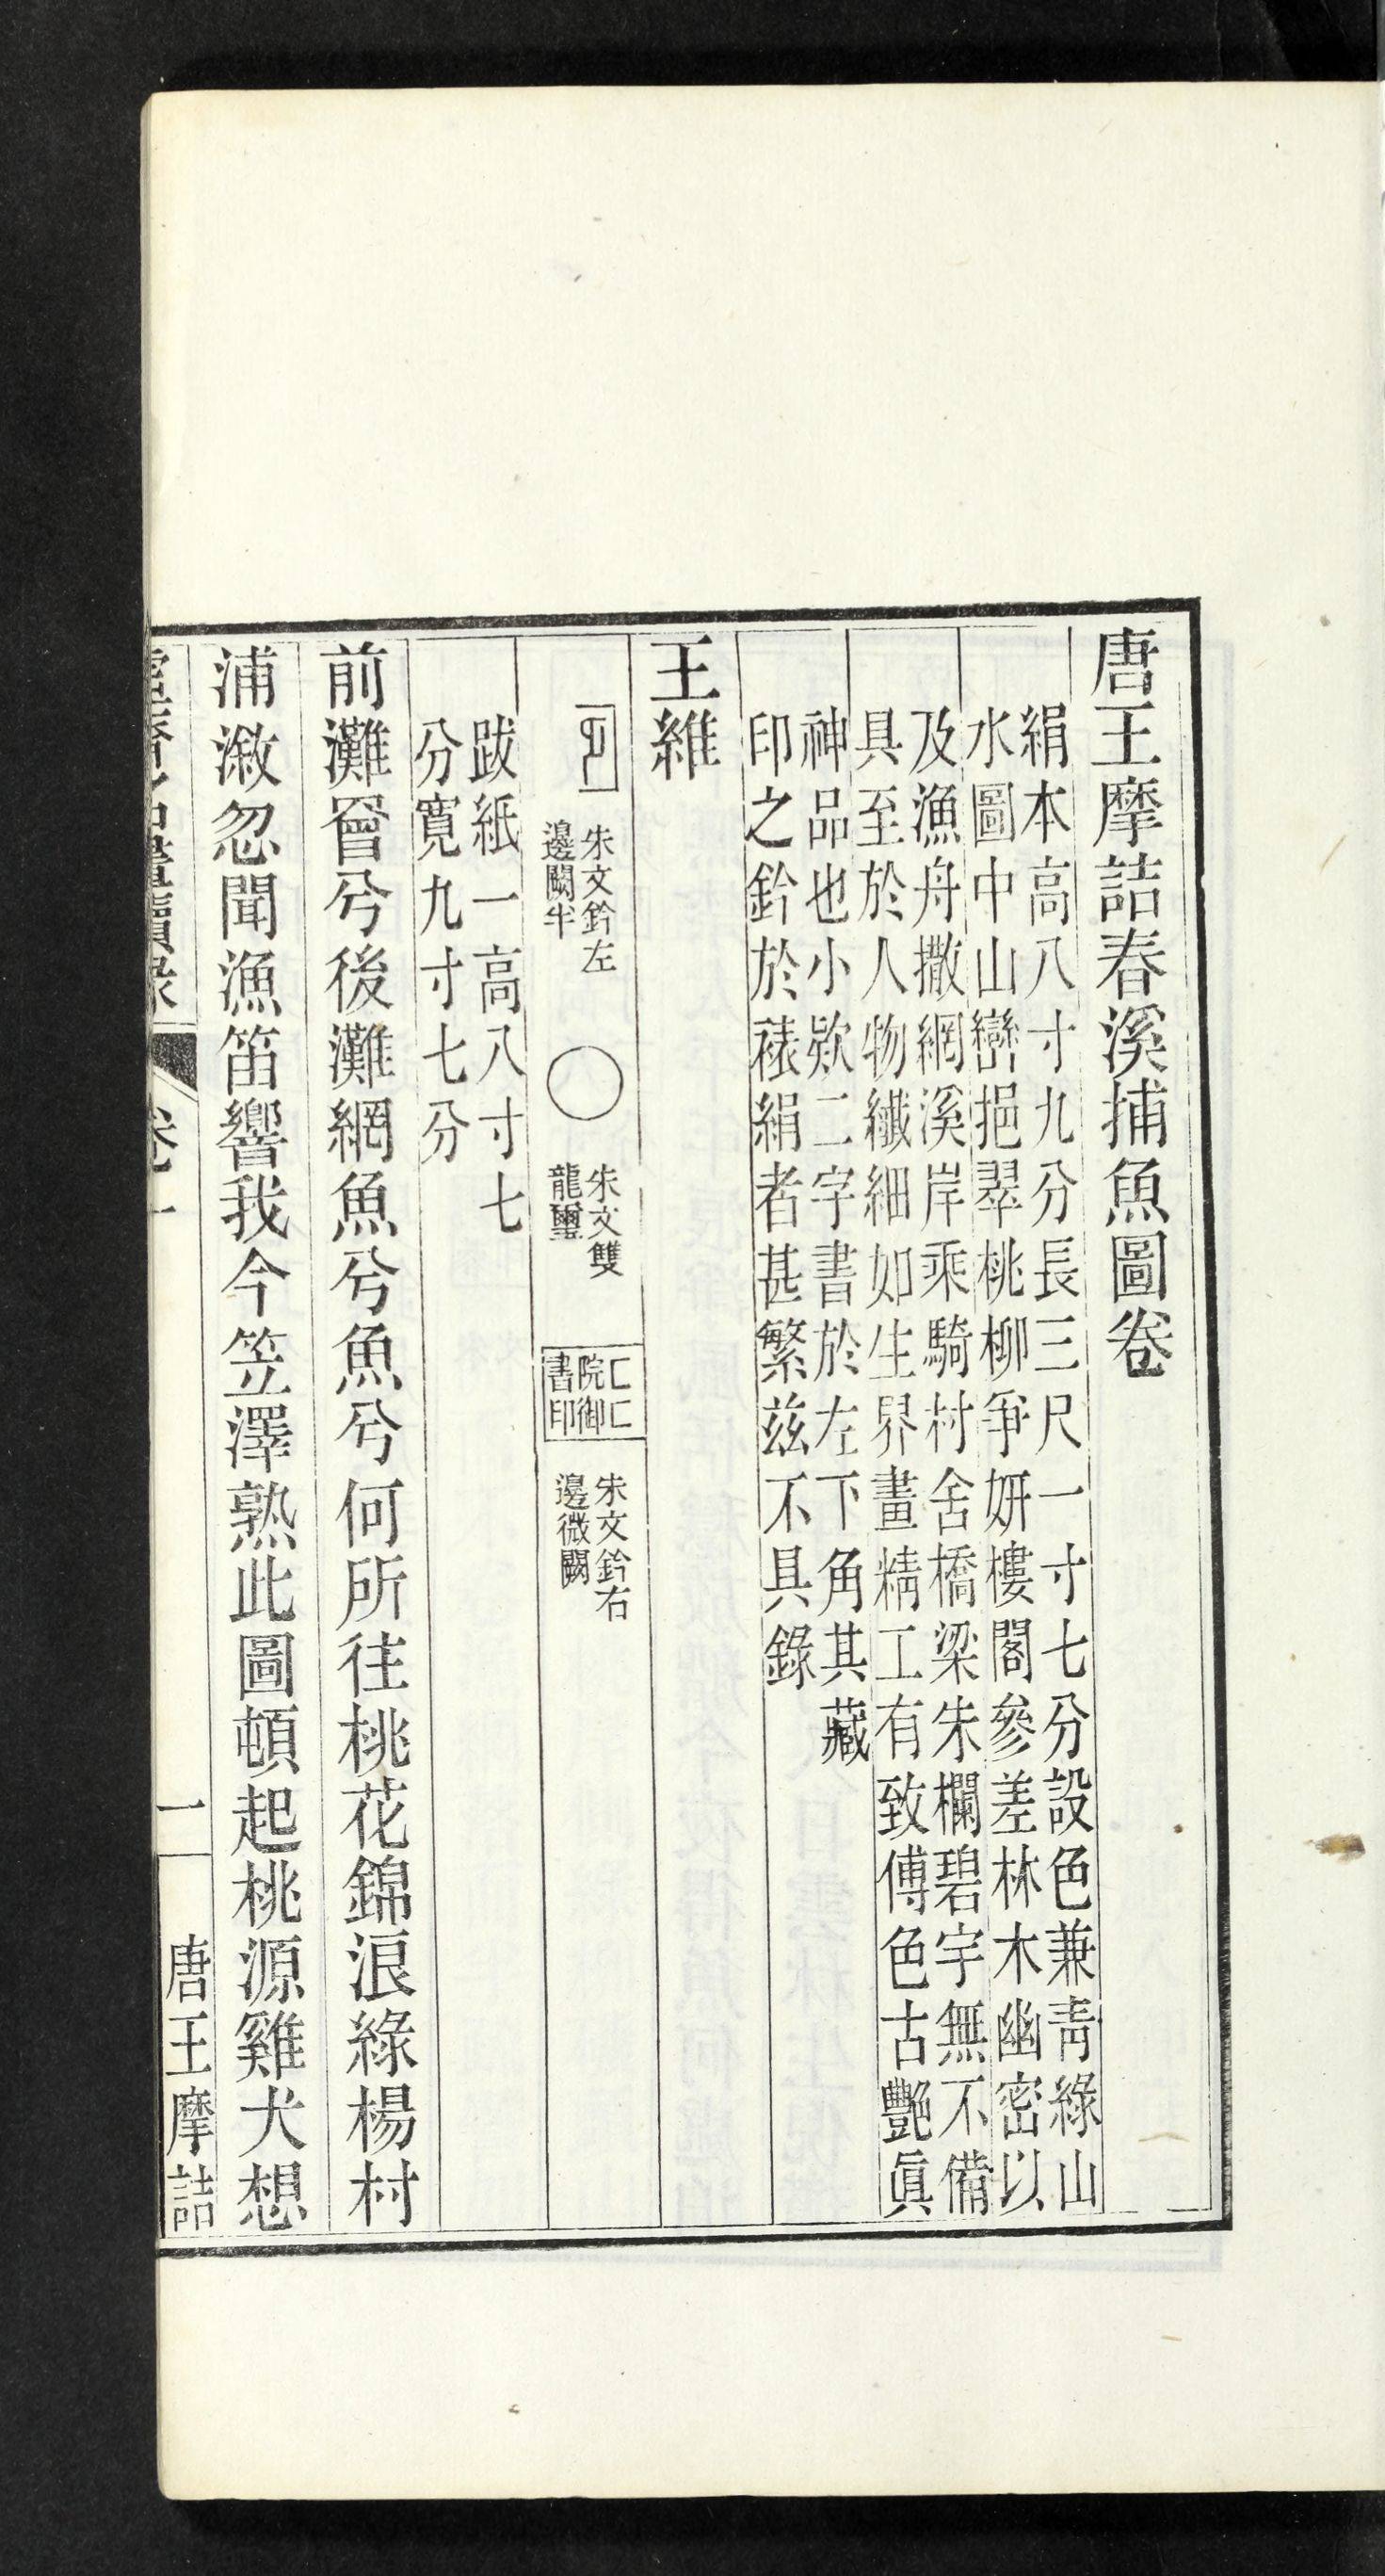 唐王摩詰春溪捕魚圖卷
絹本高八寸九分長三尺一寸七分設色兼靑綠山
水圖中山巒挹翠桃柳爭妍樓閣參差林木幽密以
及漁舟撒網溪岸乘騎村舍橋梁朱欄碧宇無不備
具至於人物纖細如生界畫精工有致傅色古艷眞
神品也小欵二字書於左下角其藏
印之鈐於裱絹者甚繁茲不具錄
王維
朱文鈐左
邊闕半
朱文雙
龍璽
院御
書印
朱文鈐右
邊微闕
跋紙一高八寸七
分寬九寸七分
前灘罾兮後灘網魚兮魚兮何所往桃花錦浪綠楊村
浦漵忽聞漁笛響我今笠澤熟此圖頓起桃源雞犬想
卷一
一
唐王摩詰